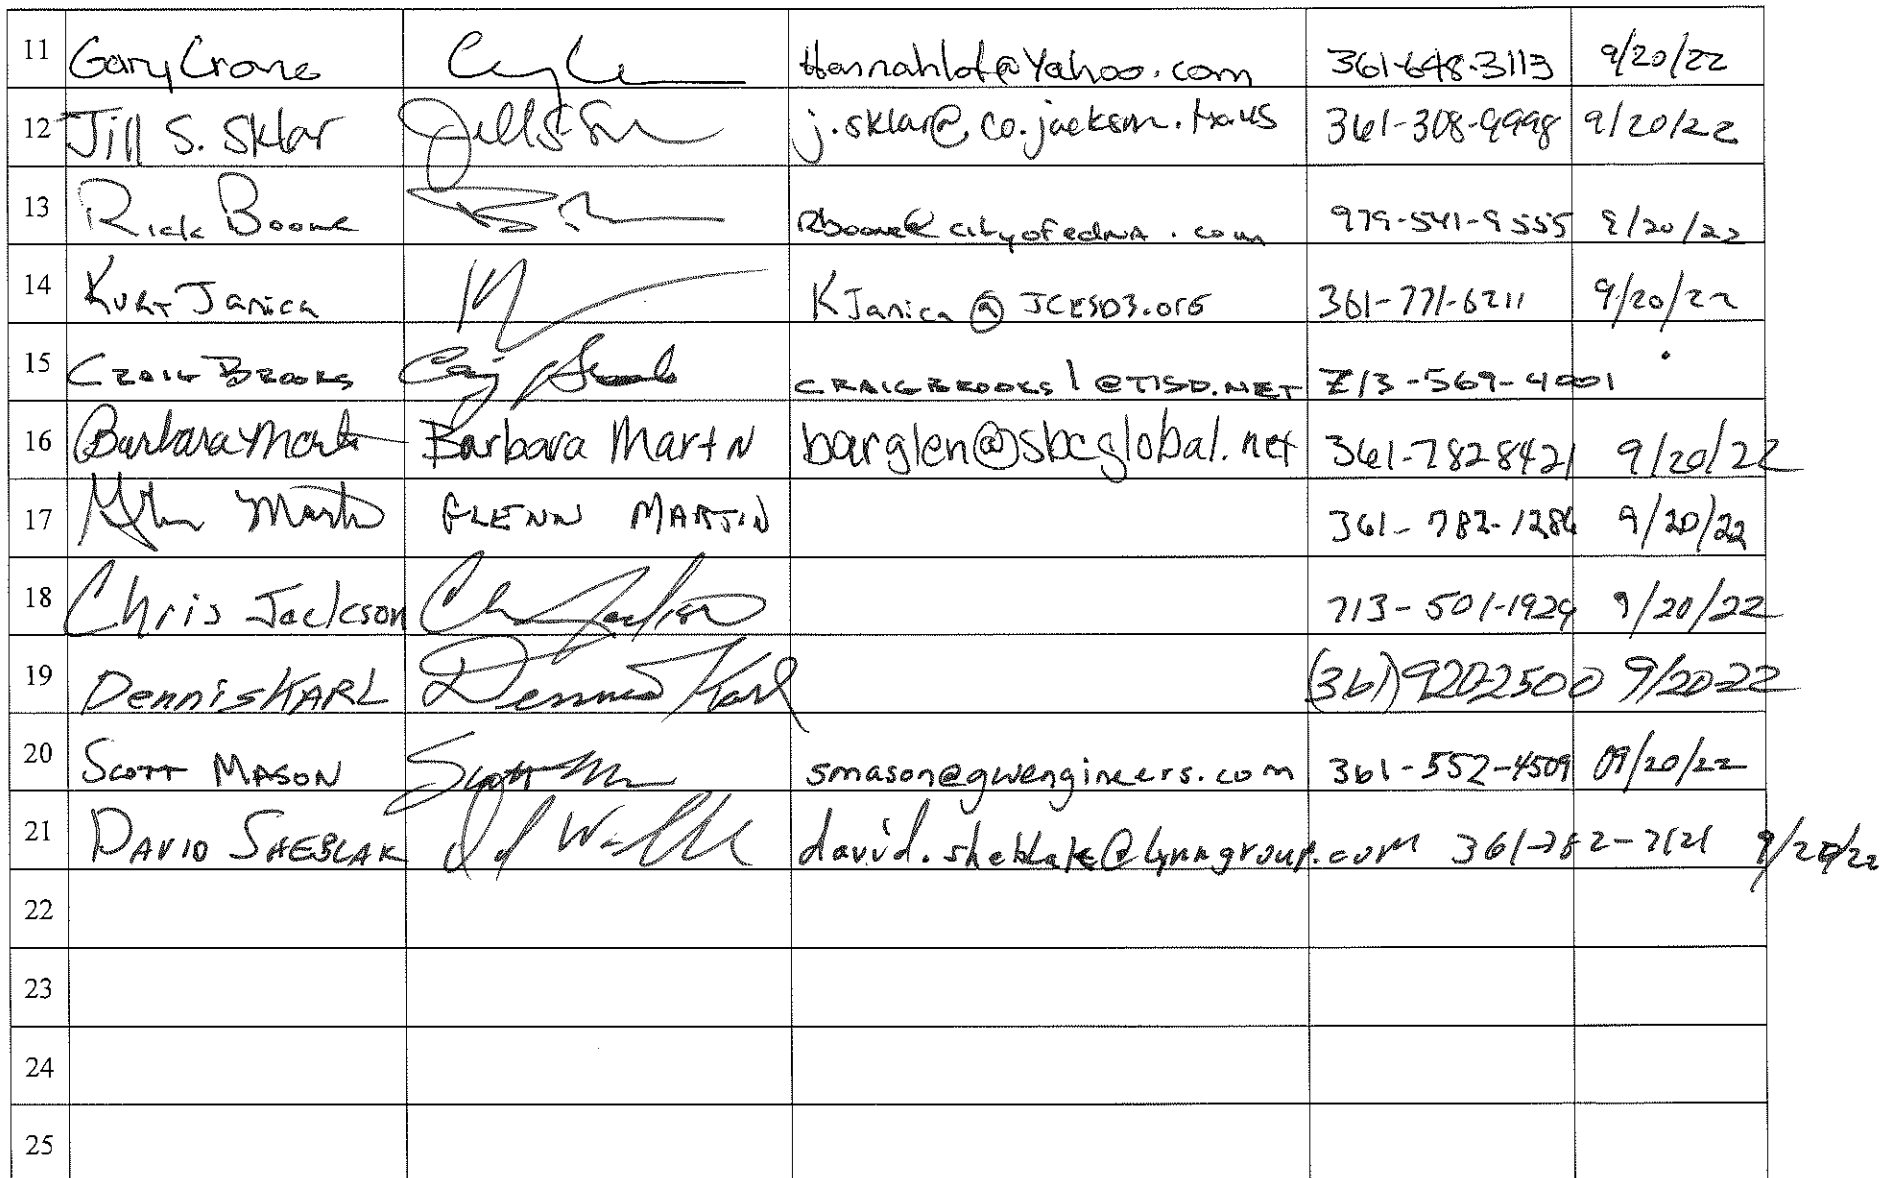 11 Gary Crone Hannahlof@Yahoo.com 361-648-3113 9/20/22
12 Jill S. Sklar j.sklar@co.jackson.tx.us 361-308-9998 9/20/22
13 Rick Boone Rboone@cityofedna.com 979-541-9555 9/20/22
14 Kurt Janica KJanica@JCESD3.org 361-771-6211 9/20/22
15 Craig Brooks Craig Brooks CRAIGBROOKS1@TISD.NET 713-569-4001
16 Barbara Martin Barbara Martin barglen@sbcglobal.net 361-782 8421 9/20/22
17 Martin GLENN MARTIN 361-782-1286 9/20/22
18 Chris Jackson Jackson 713-501-1929 9/20/22
19 Dennis KARL Dennis Karl (361) 920-2500 9/20-22
20 Scott MASON Scott smason@gwengineers.com 361-552-4509 09/20/22
21 DAVID SHEBLAK david.sheblak@lynngroup.com 361-782-7121 9/20/22
22
23
24
25